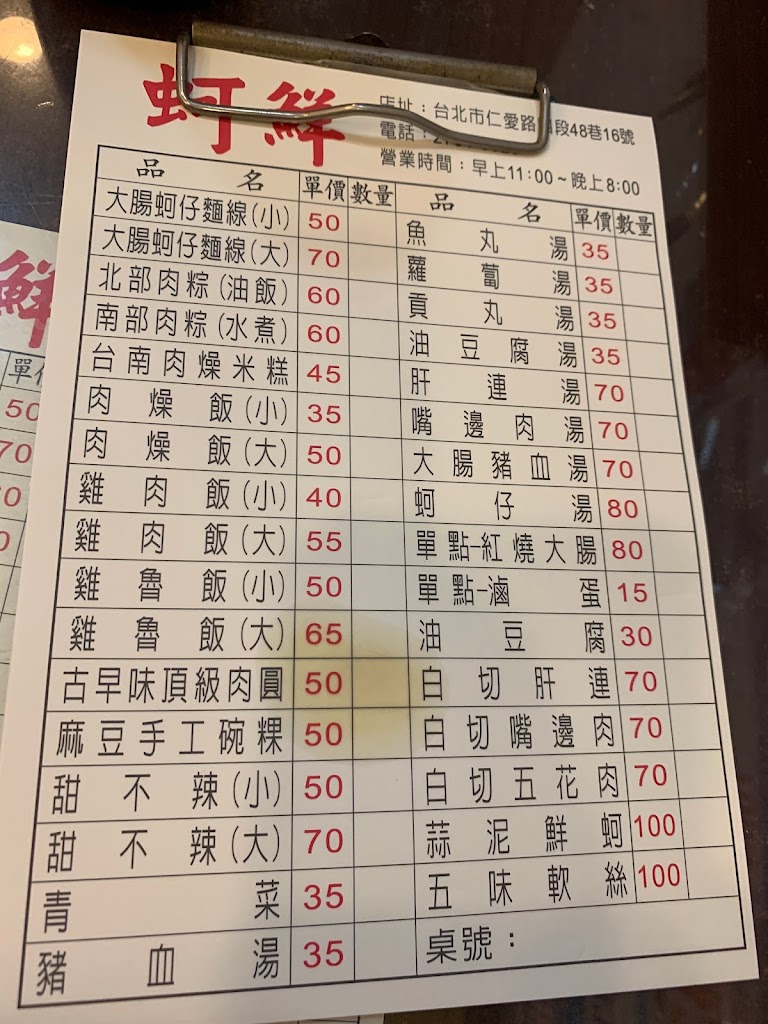 蚵鮮
店址：台北市仁愛路四段48巷16號
電話：
營業時間：早上11:00~晚上8:00
品名 單價 數量
大腸蚵仔麵線(小) 50
大腸蚵仔麵線(大) 70
北部肉粽(油飯) 60
南部肉粽(水煮) 60
台南肉燥米糕 45
肉燥飯(小) 35
肉燥飯(大) 50
雞肉飯(小) 40
雞肉飯(大) 55
雞魯飯(小) 50
雞魯飯(大) 65
古早味頂級肉圓 50
麻豆手工碗粿 50
甜不辣(小) 50
甜不辣(大) 70
青菜 35
豬血湯 35
品名 單價 數量
魚丸湯 35
蘿蔔湯 35
貢丸湯 35
油豆腐湯 35
肝連湯 70
嘴邊肉湯 70
大腸豬血湯 70
蚵仔湯 80
單點-紅燒大腸 80
單點-滷蛋 15
油豆腐 30
白切肝連 70
白切嘴邊肉 70
白切五花肉 70
蒜泥鮮蚵 100
五味軟絲 100
桌號：
鮮
單價
50
70